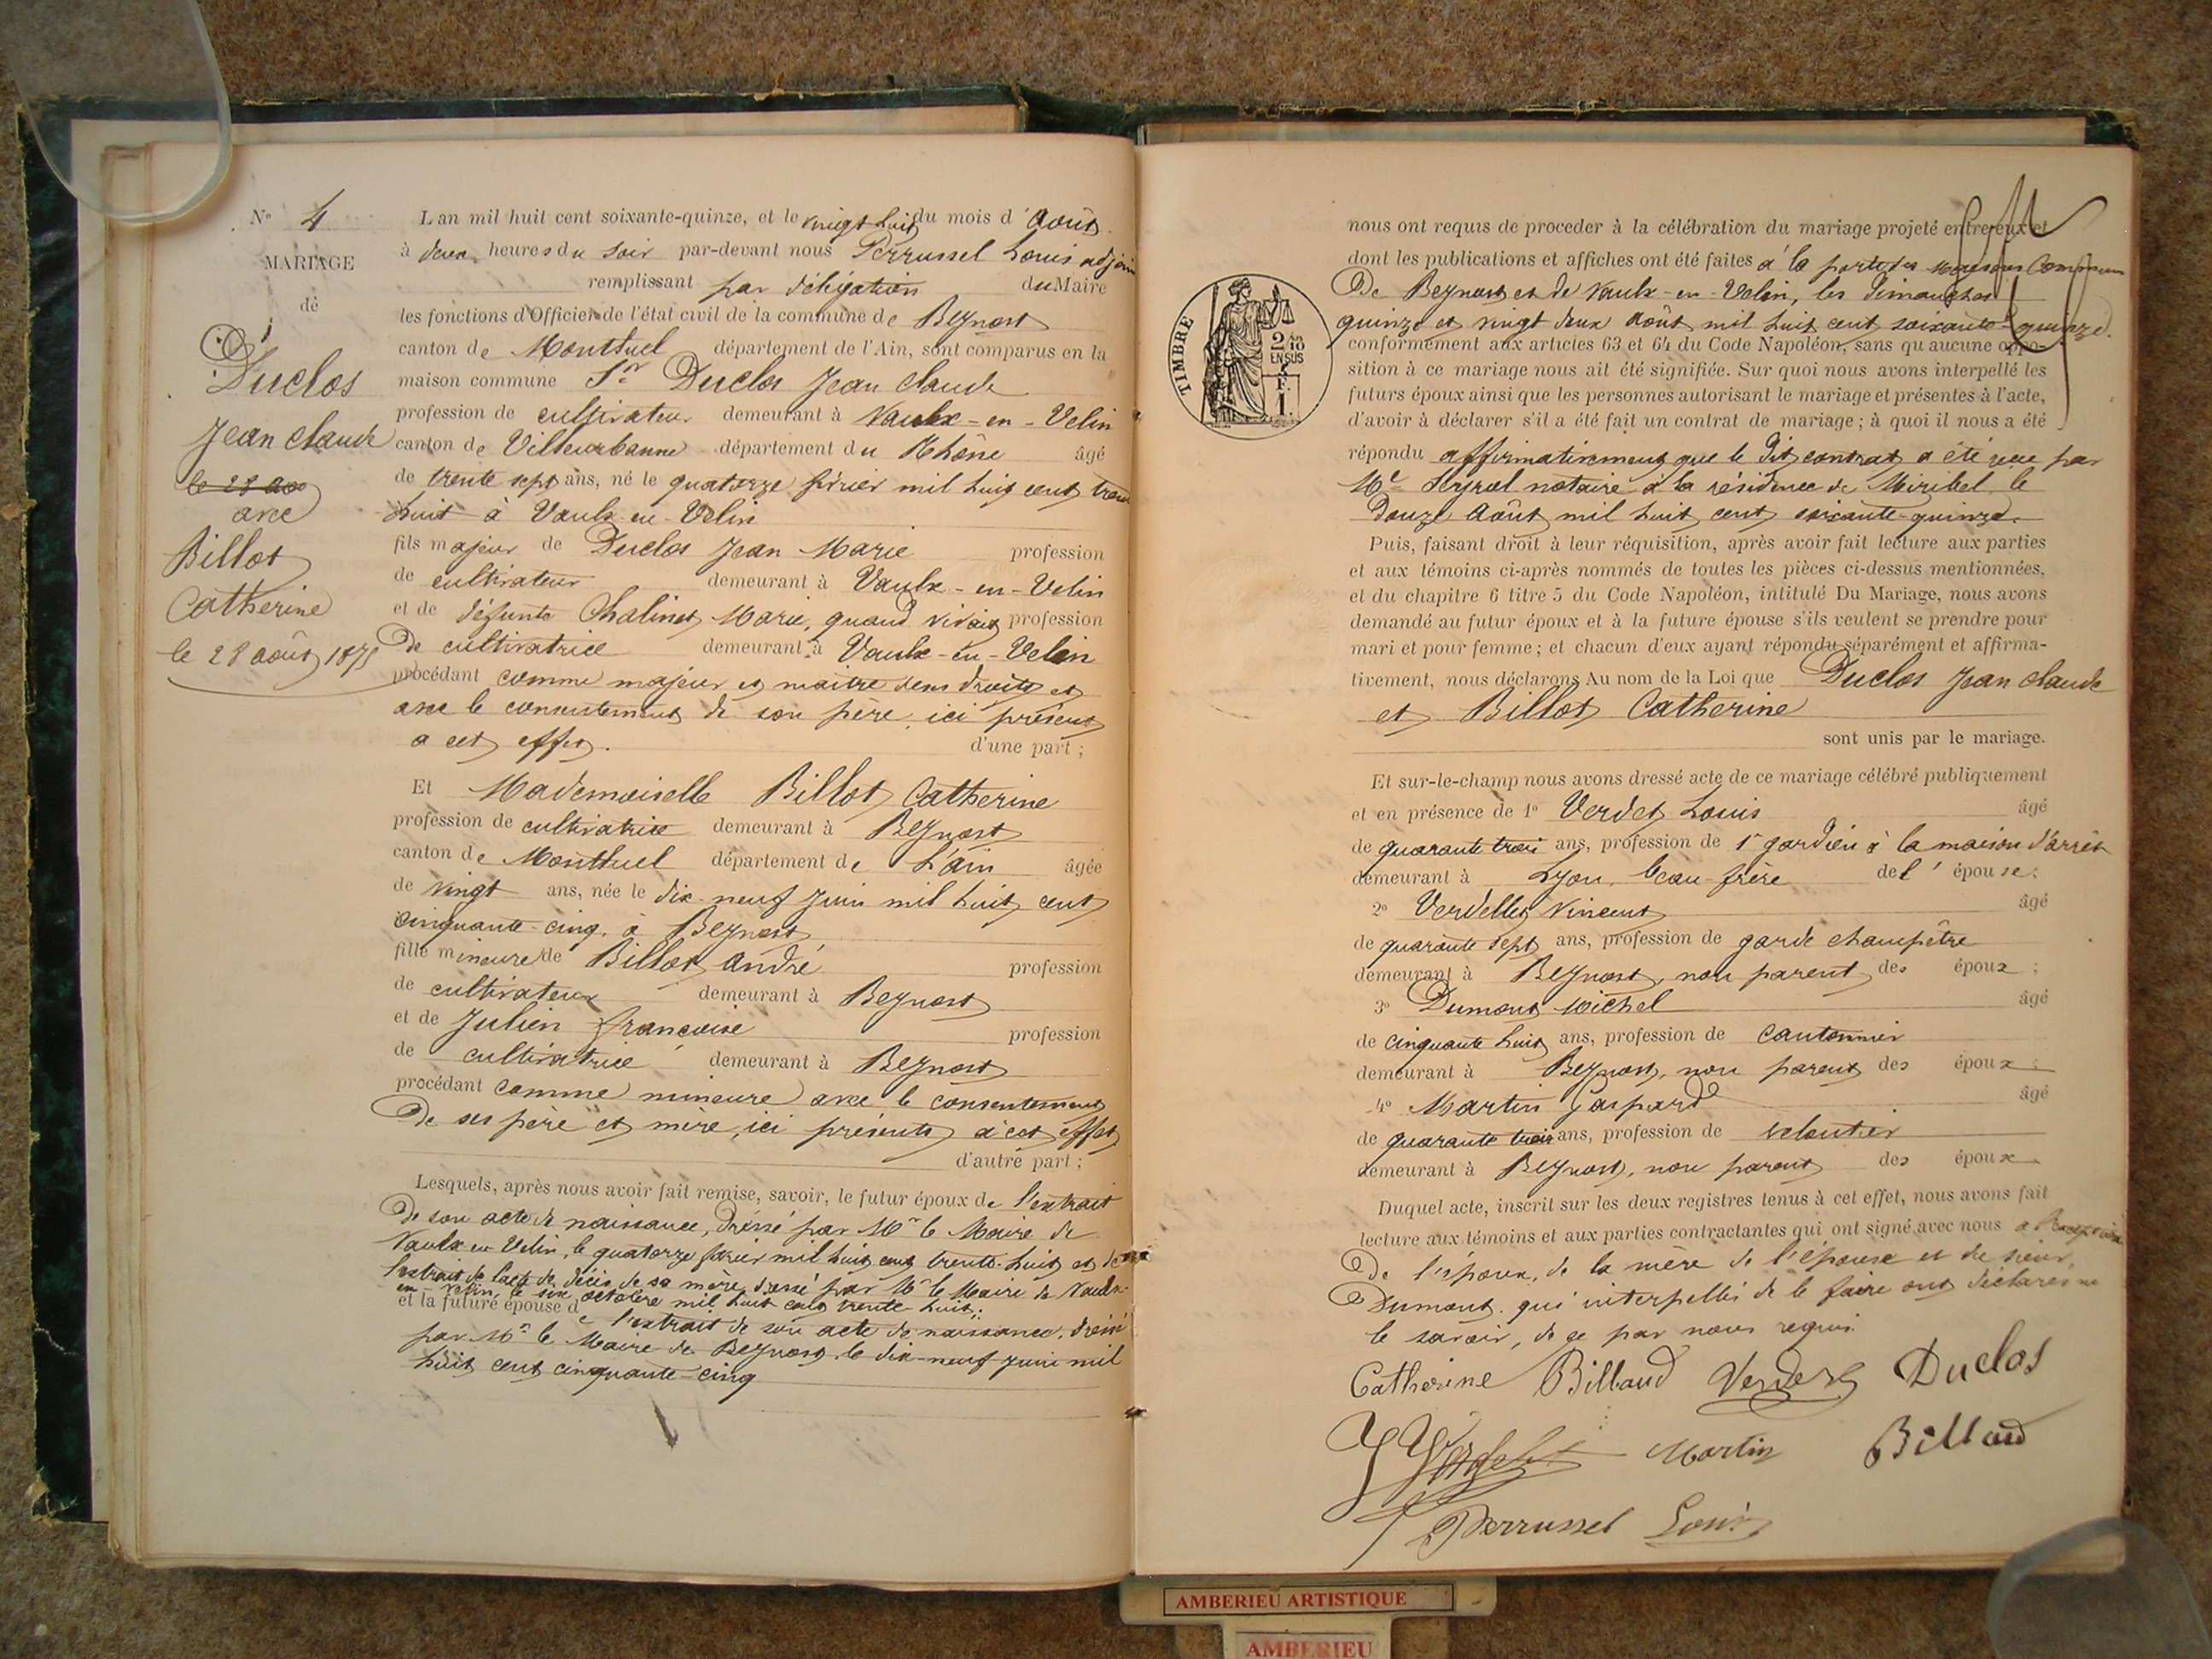 Nº 4
MARIAGE
de
Duclos
Jean Claude
le 28 aoû
avec
Billot
Catherine
le 28 août 1875
L'an mil huit cent soixante-quinze, et le vingt huit du mois d'Août
à deux heures du soir par-devant nous Perrussel Louis adjoin
remplissant par délégation du Maire
les fonctions d'Officier de l'état civil de la commune de Beynost
canton de Montluel département de l'Ain, sont comparus en la
maison commune Sr Duclos Jean Claude
profession de cultivateur demeurant à Vaulx-en-Velin
canton de Villeurbanne département du Rhône âgé
de trente sept ans, né le quatorze février mil huit cent trente
huit à Vaulx-en-Velin
fils majeur de Duclos Jean Marie profession
de cultivateur demeurant à Vaulx-en-Velin
et de défunte Chalinet Marie, quand vivait profession
de cultivatrice demeurant à Vaulx-en-Velin
procédant comme majeur et maitre de ses droits et
avec le consentement de son père, ici présent
a cet effet. d'une part ;
Et Mademoiselle Billot Catherine
profession de cultivatrice demeurant à Beynost
canton de Montluel département de L'ain âgée
de vingt ans, née le dix-neuf juin mil huit cent
cinquante-cinq, à Beynost
fille mineure de Billot André profession
de cultivateur demeurant à Beynost
et de Julien françoise profession
de cultivatrice demeurant à Beynost
procédant comme mineure avec le consentement
de ses père et mère, ici présents à cet effet
d'autre part ;
Lesquels, après nous avoir fait remise, savoir, le futur époux de l'extrait
de son acte de naissance, dressé par Mr le Maire de
Vaulx en Velin, le quatorze février mil huit cent trente-huit et de
l'extrait de l'acte de décès de sa mère, dressé par Mr le Maire de Vaulx-
en-Velin, le six octobre mil huit cent trente huit.
et la future épouse de l'extrait de son acte de naissance, dressé
par Mr le Maire de Beynost, le dix-neuf juin mil
huit cent cinquante-cinq
nous ont requis de procéder à la célébration du mariage projeté entre eux et
dont les publications et affiches ont été faites à la porte des maisons Commune
de Beynost et de Vaulx-en-Velin, les dimanches
quinze et vingt deux Août mil huit cent soixante-quinze.
TIMBRE
2/10
EN SUS
conformément aux articles 63 et 64 du Code Napoléon, sans qu'aucune oppo-
sition à ce mariage nous ait été signifiée. Sur quoi nous avons interpellé les
futurs époux ainsi que les personnes autorisant le mariage et présentes à l'acte,
d'avoir à déclarer s'il a été fait un contrat de mariage ; à quoi il nous a été
répondu affirmativement que le dit contrat a été reçu par
Me notaire à la résidence de Miribel le
douze Août mil huit cent soixante-quinze.
Puis, faisant droit à leur réquisition, après avoir fait lecture aux parties
et aux témoins ci-après nommés de toutes les pièces ci-dessus mentionnées,
et du chapitre 6 titre 5 du Code Napoléon, intitulé Du Mariage, nous avons
demandé au futur époux et à la future épouse s'ils veulent se prendre pour
mari et pour femme ; et chacun d'eux ayant répondu séparément et affirma-
tivement, nous déclarons Au nom de la Loi que Duclos Jean Claude
et Billot Catherine
sont unis par le mariage.
Et sur-le-champ nous avons dressé acte de ce mariage célébré publiquement
et en présence de 1º Verdet Louis âgé
de quarante trois ans, profession de 1er gardien à la maison d'arrêt
demeurant à Lyon, beau-frère de l'épouse ;
2º Verdellet Vincent âgé
de quarante sept ans, profession de garde champêtre
demeurant à Beynost, non parent des époux ;
3º Dumont Michel âgé
de cinquante huit ans, profession de cantonnier
demeurant à Beynost, non parent des époux ;
4º Martin Gaspard âgé
de quarante trois ans, profession de veloutier
demeurant à Beynost, non parent des époux
Duquel acte, inscrit sur les deux registres tenus à cet effet, nous avons fait
lecture aux témoins et aux parties contractantes qui ont signé avec nous
de l'époux, de la mère de l'épouse et du sieur
Dumont. qui interpellés de le faire ont déclarés ne
le savoir, de ce par nous requis.
Catherine Billaud Verdet Duclos
Martin Billaud
Perrussel Louis
AMBERIEU ARTISTIQUE
AMBERIEU